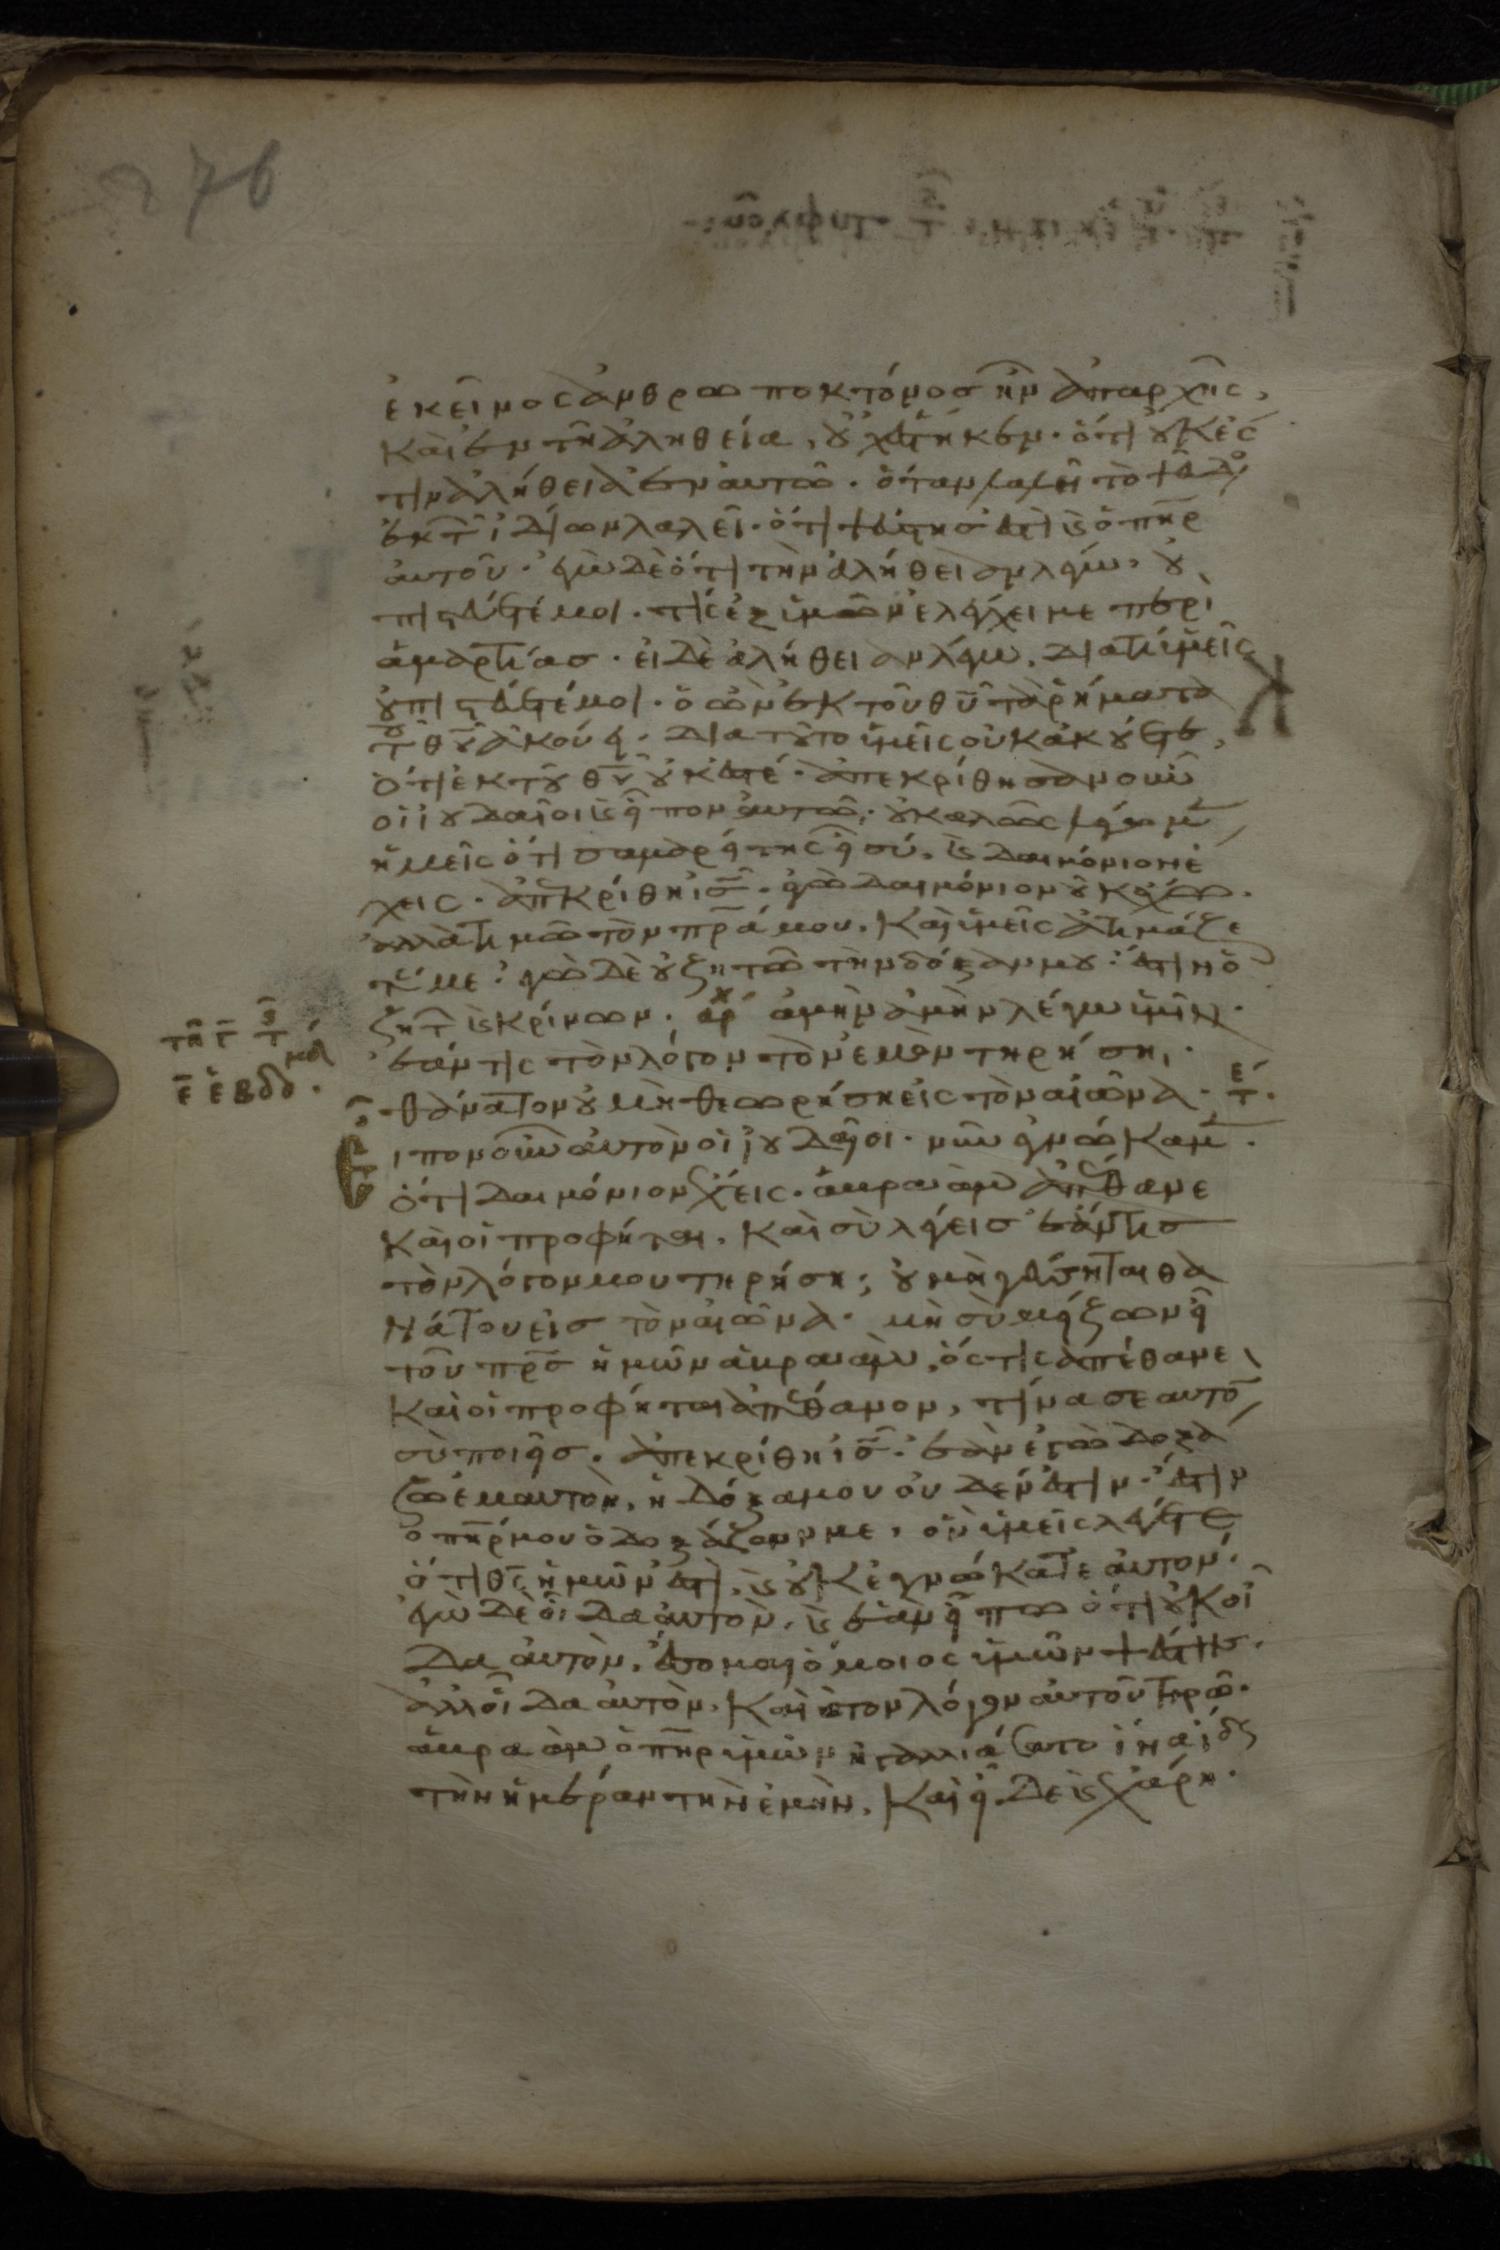 276
ἐκεῖνος ἀνθρωποκτόνος ἦν ἀπαρχῆς,
καὶ ἐν τῆ ἀληθεία, οὐχ ἕστηκεν. ὅτι οὐκ ἔσ
τιν ἀλήθεια ἐν αὐτῶ. ὅταν λαλῆ τὸ ψεῦδο
ἐκ τῶ ἰδίων λαλεῖ. ὅτι ψεύστης ἐστὶ κ ὁ πηρ
αὐτοῦ. ἐγὼ δὲ ὅτι τὴν ἀλήθειαν λέγω, οὐ
πιστεύετέ μοι. τίς ἐξ ὑμῶν ἐλέγχει με περὶ
ἁμαρτίας. εἰ δὲ ἀλήθειαν λέγω, διατί ὑμεῖς
οὐ πιστεύετέ μοι. ὁ ὢν ἐκ τοῦ θυ τὰ ῥήματα
τ θυ ἀκούει. διατοῦτο ὑμεῖς οὐκ ἀκούετε,
ὅτι ἐκ τοῦ θυ οὐκ ἐστέ. ἀπεκρίθησαν οὖν
οἱ ἰουδαῖοι κ εἶπον αὐτῶ. οὐ καλῶς λέγομ
ἡμεῖς ὅτι σαμαρείτης εἶ σύ, κ δαιμόνιον ἔ
χεις. ἀπκρίθη ις. ἐγὼ δαιμόνιον οὐκ ἔχω.
ἀλλὰ τιμῶ τὸν πρα μου, καὶ ὑμεῖς ἀτιμάζε
τέ με. ἐγὼ δὲ οὐ ζητῶ τὴν δόξαν μου. ἔστιν ὁ
ζητ κ κρίνων. αρχ ἀμὴν ἀμὴν λέγω ὑμῖν.
ἐάν τις τὸν λόγον τὸν ἐμὸν τηρήση,
θάνατον οὐ μὴ θεωρήση εἰς τὸν αἰῶνα. τε.
τη γ τ
ε ἑβδο.
εἶπον οὖν αὐτὸν οἱ ἰουδαῖοι. νῦν ἐγνώκαμ.
ὅτι δαιμόνιον ἔχεις. ἀβραὰμ ἀπέθανε
καὶ οἱ προφῆται, καὶ σὺ λέγεις ἐάν τις
τὸν λόγον μου τηρήση, οὐ μὴ γεύσηται θα
νάτου εἰς τὸν αἰῶνα. μὴ σὺ μείζων εἶ
τοῦ πρς ἡμῶν ἀβραάμ, ὅστις ἀπέθανε,
καὶ οἱ προφῆται ἀπέθανον, τίνα σεαυτὸ
σὺ ποιεῖς. ἀπεκρίθη ις. ἐὰν ἐγὼ δοξά
ζω ἐμαυτὸν, ἡ δόξα μου οὐδέν ἐστιν. ἔστιν
ὁ πηρ μου ὁ δοξάζων με, ὃν ὑμεῖς λέγετε
ὅτι θς ἡμῶν ἐστι, κ οὐκ ἐγνώκατε αὐτόν.
ἐγὼ δὲ οἶδα αὐτὸν, κ ἐὰν εἴπω ὅτι οὐκ οἶ
δα αὐτὸν, ἔσομαι ὅμοιος ὑμῶν ψεύστης.
ἀλλ οἶδα αὐτὸν, καὶ τὸν λόγον αὐτοῦ τηρῶ.
ἀβραὰμ ὁ πηρ ὑμῶν ἠγαλλιάσατο ἵνα ἴδη
τὴν ἡμέραν τὴν ἐμὴν, καὶ εἶδε κ χάρη.